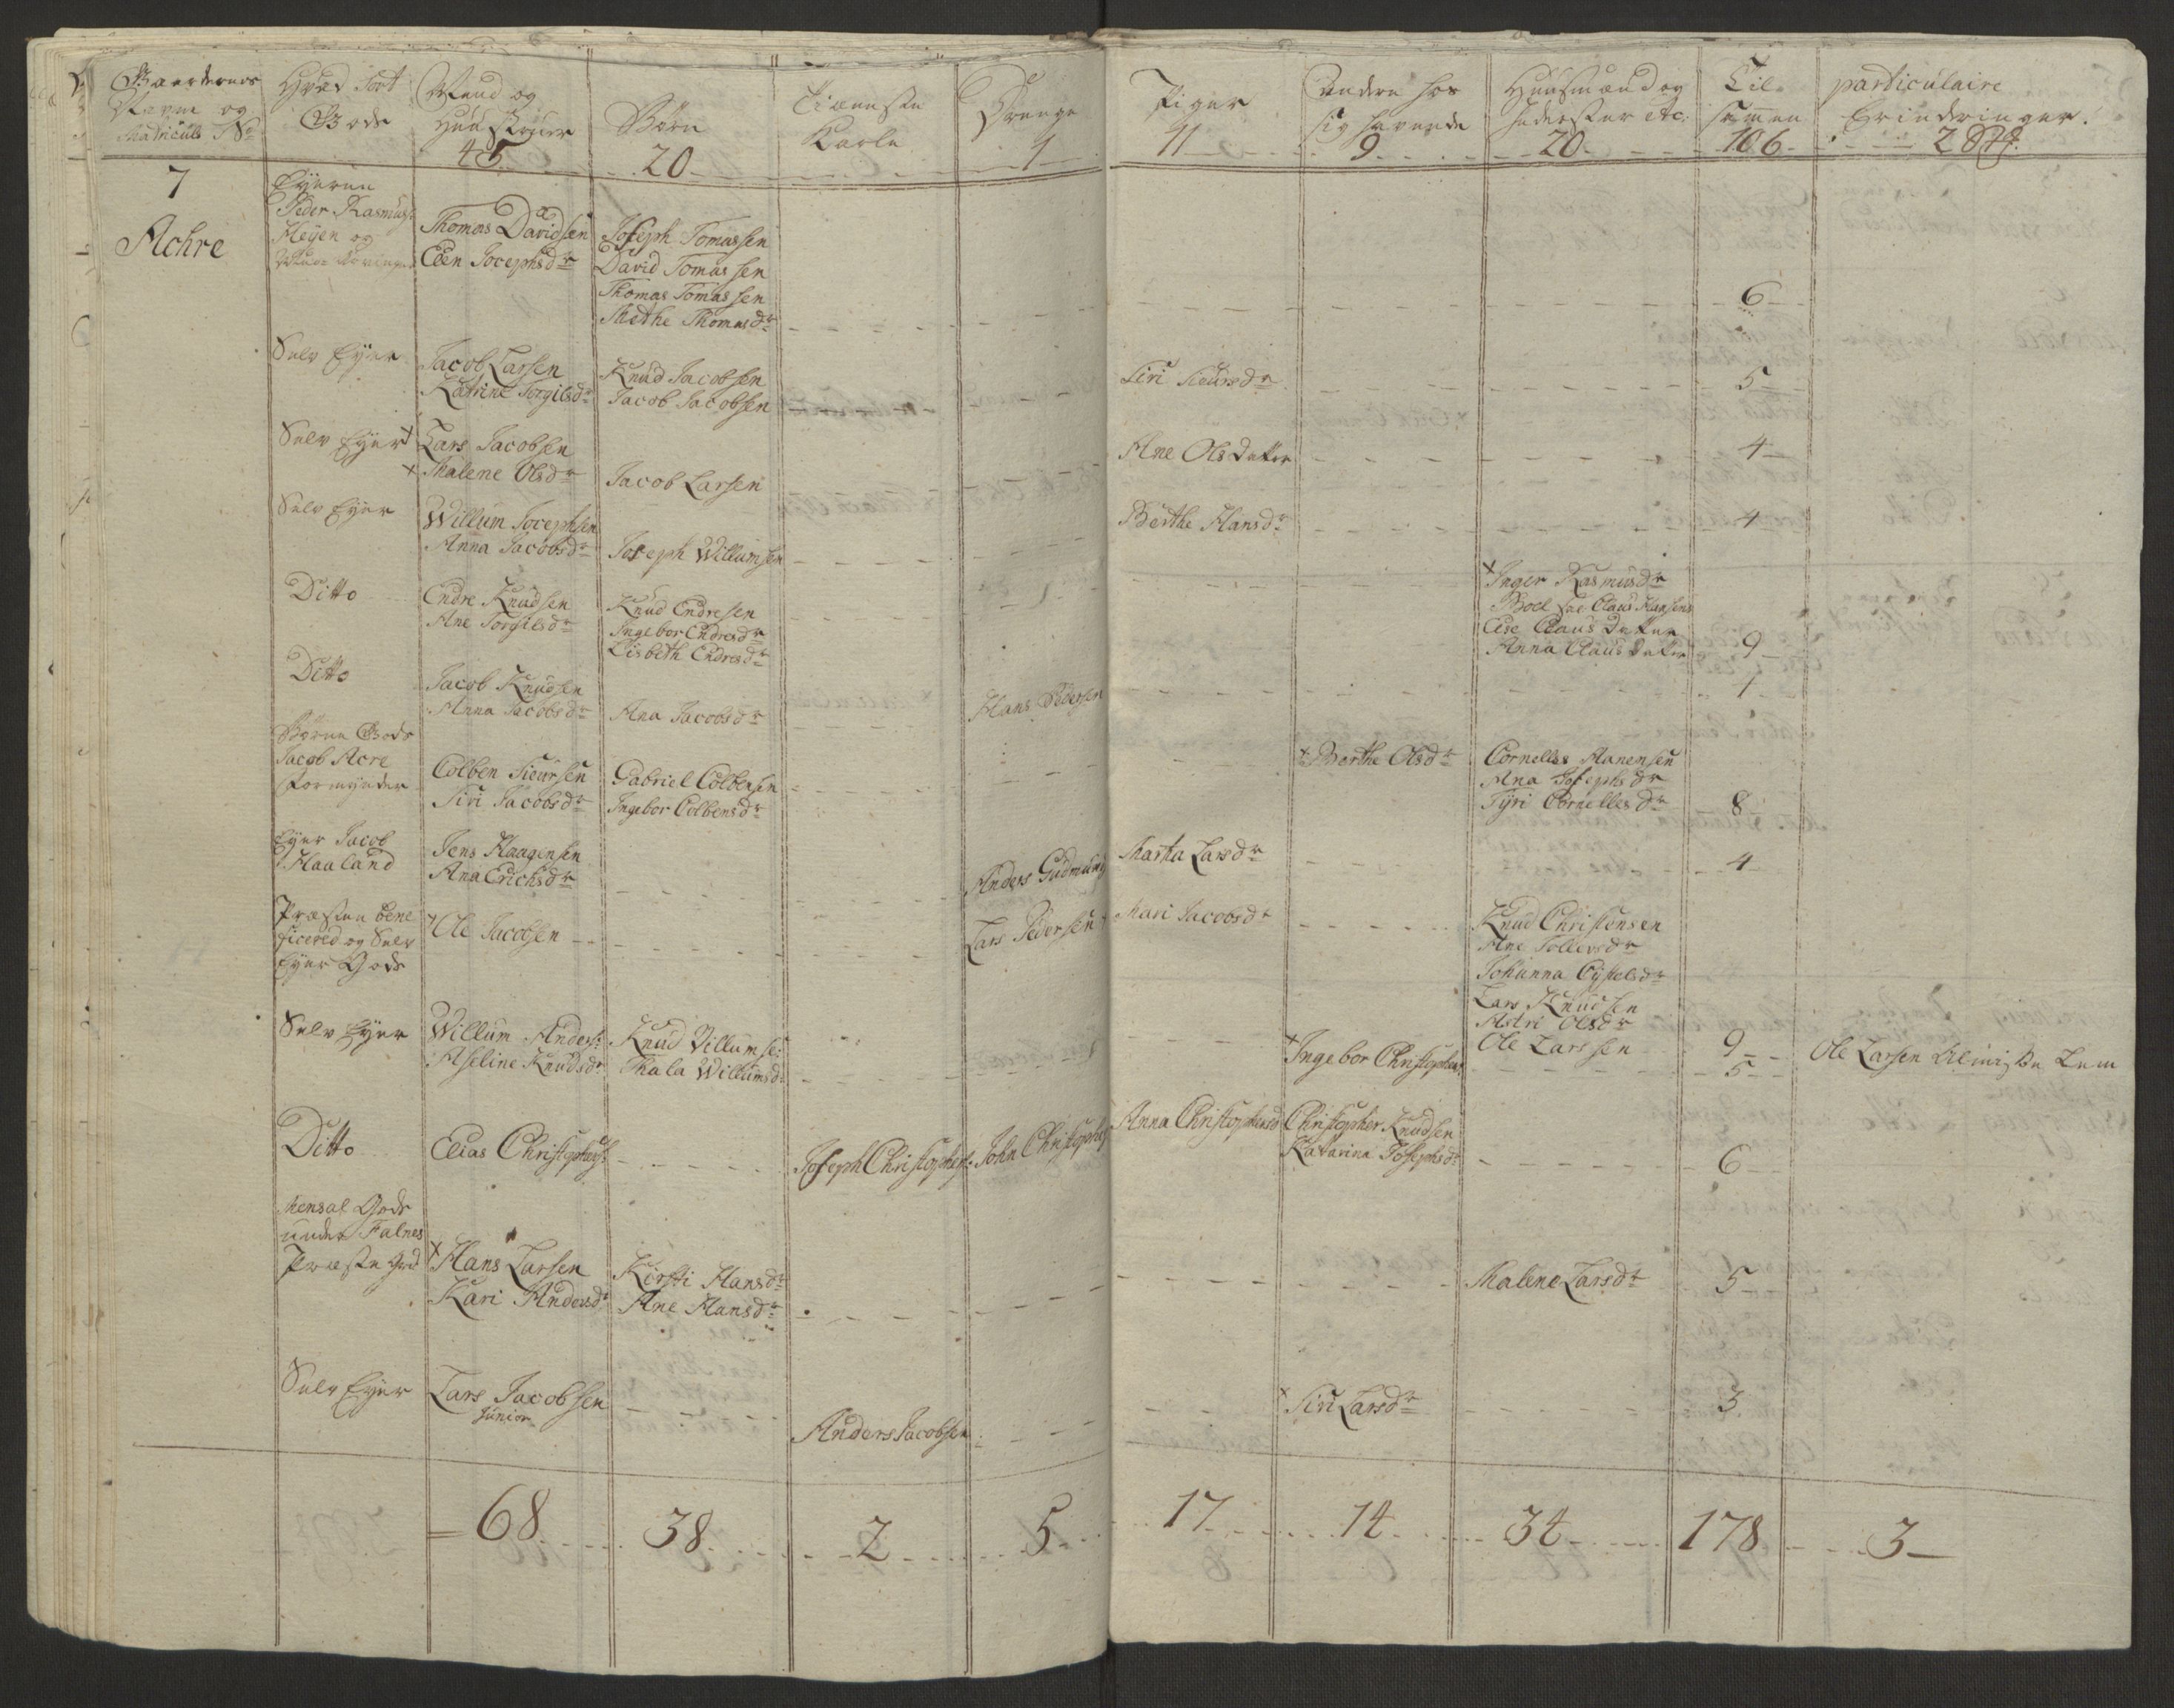 Gaardernes
Navne og
Matriculs No
Hvad Sort
Gods
Mænd og
Huustruer
Børn
Tieneste
Karle
Drenge
Piger
Andre hos
sig havende
Huusmænd og
Inderster etc:
Til-
sammen
particulaire
Erindringer.
45 20 1 11 9 20 106 2
7
Achre
Eyeren
Peder Rasmuss:
Meyen og
Thomas Davidsen
Elen Jocephsdr
Joseph Tomassen
David Tomassen
Thomas Tomassen
Methe Thomasdr
6
Selv Eyer
Jacob Larsen
Katrine Torgilsdr
Knud Jacobsen
Jacob Jacobsen
Siri Siursdr
5
Selv Eyer
+ Lars Jacobsen
+ Malene Olsdr
Jacob Larsen
Ane Olsdatter
4
Selv Eyer
Willum Jocephsen
Anna Jacobsdr
Joseph Willumsen
Berthe Hansdr
4
Ditto
Endre Knudsen
Ane Torgilsdr
Knud Endresen
Ingebor Endresdr
Lisbeth Endresdr
+ Inger Rasmusdr
Boel Sal Claus Hansens
Else Claus datter
Anna Claus datter
9
Ditto
Jacob Knudsen
Anna Jacobsdr
Ana Jacobsdr
Hans Pedersen
1
Børne Gods
Jacob Acre
Formynder
Colben Siursen
Siri Jacobsdr
Gabriel Colbensen
Ingebor Colbensdr
+ Berthe Olsdr
Cornelles Hanensen
Ana Josephsdr
Tyri Cornellesdr
8
Eyer Jacob
Haaland
Jens Haagensen
Ana Erichsdr
Anders Gudmund
Marta Larsdr
4
Præsten bene
ficered og Selv
Eyer Gods
+ Ole Jacobsen
Lars Pedersen
Mari Jacobsdr
Knud Christensen
Ane Tollevsdr
Johanna Eyhelsdr
Lars Knudsen
Astri Olsdr
Ole Larssen
9
Ole Larsen Alminste Lem
Selv Eyer
Willum Anders:
Aseline Knudsdr
Knud Villumse:
Thala Willumsdr
+ Ingebor Christophers:
5
Ditto
Elias Christophers:
Joseph Christophers:
John Christophers
Anna Christophersd
Christopher Knudsen
Katarina Josephsdr
6
Mensal Gods
under Falnes
Præste Gield
+ Hans Larsen
Kari Andersdr
Kirsti Hansdr
Ane Hansdr
Malene Larsdr
5
Selv Eyer
Lars Jacobsen
Junior
Anders Jacobsen
+ Siri Larsdr
3
68 38 2 5 17 14 34 178 3